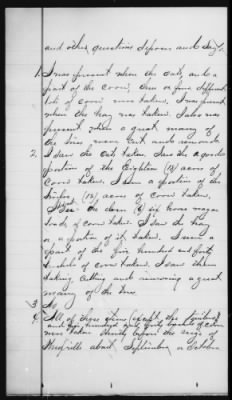 and other questions deposes and says.
1. I was present when the oats and a
part of the corn, four or five different
lots of corn were taken. I was present
when the hay was taken. I also was
present when a great many of
the trees were cut and removed
2. I saw the oats taken. I saw the a good
portion of the Eighteen (18) acres of
corn taken. I seen a portion of the
Twelve (12) acres of corn taken.
I saw the six horse wagon
loads of corn taken. I saw the hay
or a portion of it taken. I seen a
part of the five hundred and forty
bushels of corn taken. I saw them
taking, cutting and removing a great
many of the trees
3. No
4. All of these items (except the
and five hundred and forty bushels of corn
were taken shortly before the
about September or October